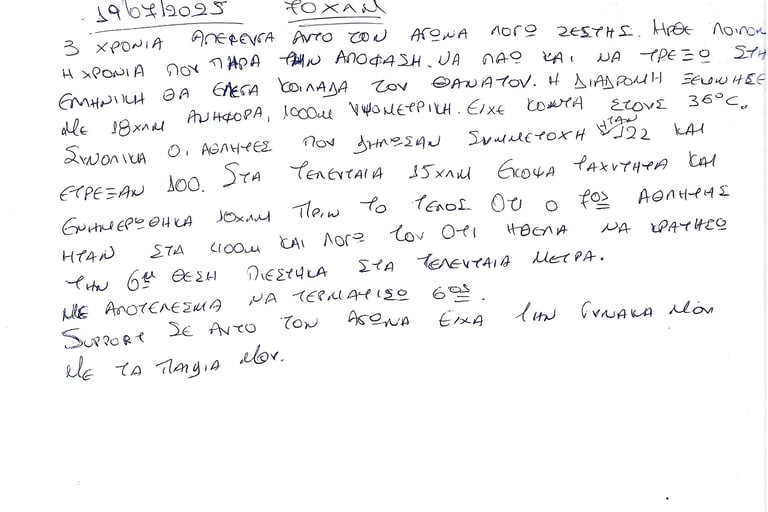 19/07/2025 70ΧΛΜ
3 ΧΡΟΝΙΑ ΑΠΕΦΕΥΓΑ ΑΥΤΟ ΤΟΝ ΑΓΩΝΑ ΛΟΓΩ ΖΕΣΤΗΣ. ΗΡΘΕ ΛΟΙΠΟΝ
Η ΧΡΟΝΙΑ ΠΟΥ ΠΗΡΑ ΤΗΝ ΑΠΟΦΑΣΗ ΝΑ ΠΑΩ ΚΑΙ ΝΑ ΤΡΕΞΩ ΣΤΗ
ΕΛΛΗΝΙΚΗ ΘΑ ΕΛΕΓΑ ΚΟΙΛΑΔΑ ΤΟΥ ΘΑΝΑΤΟΥ. Η ΔΙΑΔΡΟΜΗ ΞΕΚΙΝΗΣΕ
ΜΕ 18ΧΛΜ ΑΝΗΦΟΡΑ, 1000m ΥΨΟΜΕΤΡΙΚΗ. ΕΙΧΕ ΚΟΝΤΑ ΣΤΟΥΣ 36°C.
ΣΥΝΟΛΙΚΑ ΟΙ ΑΘΛΗΤΕΣ ΠΟΥ ΔΗΛΩΣΑΝ ΣΥΜΜΕΤΟΧΗ ΗΤΑΝ 122 ΚΑΙ
ΕΤΡΕΞΑΝ 100. ΣΤΑ ΤΕΛΕΥΤΑΙΑ 15ΧΛΜ ΕΚΟΨΑ ΤΑΧΥΤΗΤΑ ΚΑΙ
ΕΝΗΜΕΡΩΘΗΚΑ 10ΧΛΜ ΠΡΙΝ ΤΟ ΤΕΛΟΣ ΟΤΙ Ο 7ος ΑΘΛΗΤΗΣ
ΗΤΑΝ ΣΤΑ 400m ΚΑΙ ΛΟΓΩ ΤΟΥ ΟΤΙ ΗΘΕΛΑ ΝΑ ΚΡΑΤΗΣΩ
ΤΗΝ 6η ΘΕΣΗ ΠΙΕΣΤΗΚΑ ΣΤΑ ΤΕΛΕΥΤΑΙΑ ΜΕΤΡΑ.
ΜΕ ΑΠΟΤΕΛΕΣΜΑ ΝΑ ΤΕΡΜΑΤΙΣΩ 6ος.
SUPPORT ΣΕ ΑΥΤΟ ΤΟΝ ΑΓΩΝΑ ΕΙΧΑ ΤΗΝ ΓΥΝΑΚΑ ΜΟΥ
ΜΕ ΤΑ ΠΑΙΔΙΑ ΜΟΥ.